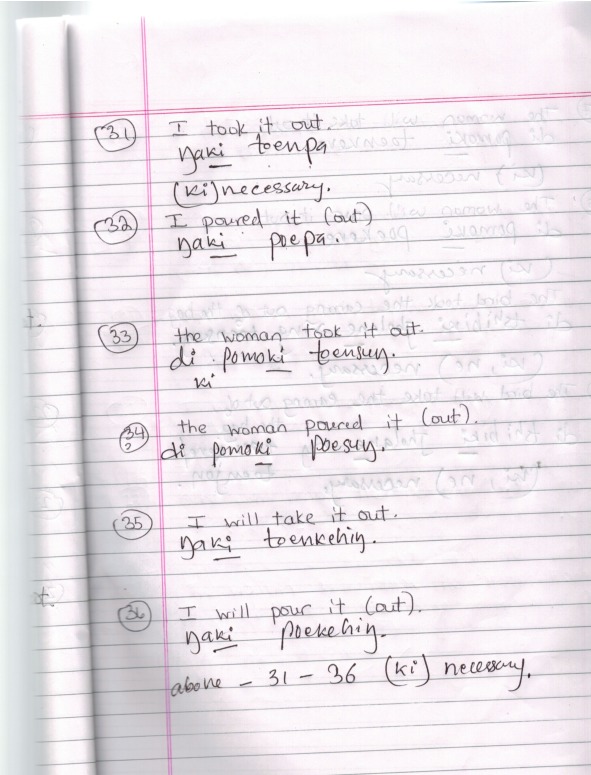 31 I took it out.
ŋaki toenpa
(ki) necessary.
32 I poured it (out)
ŋaki poepa.
33 the woman took it out.
di pomoki toensuŋ.
ki
34 the woman poured it (out).
? di pomoki poesuŋ.
35 I will take it out.
ŋaki toenkehiŋ.
36 I will pour it (out).
ŋaki poekehiŋ.
above - 31 - 36 (ki) necessary.